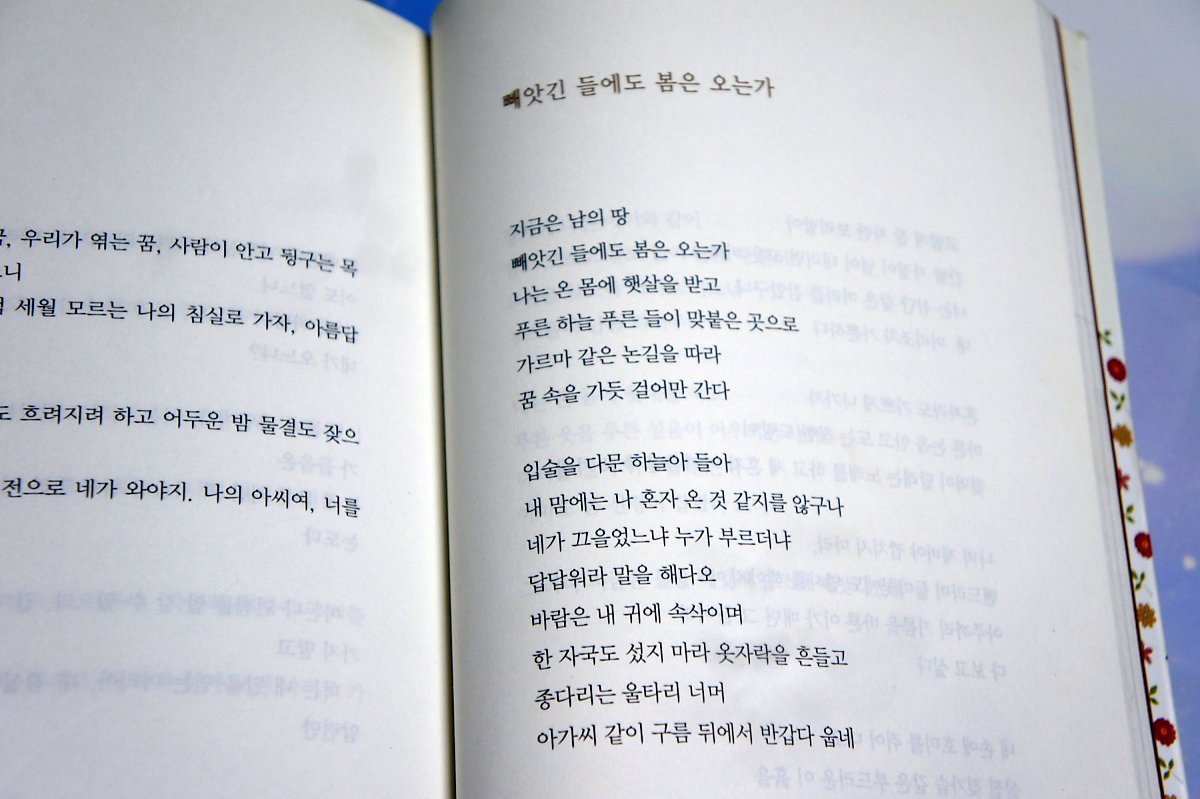 우리가 엮는 꿈, 사람이 안고 뒹구는 목
세월 모르는 나의 침실로 가자, 아름답
흐려지려 하고 어두운 밤 물결도 잦으
전으로 네가 와야지. 나의 아씨여, 너를
빼앗긴 들에도 봄은 오는가
지금은 남의 땅
빼앗긴 들에도 봄은 오는가
나는 온 몸에 햇살을 받고
푸른 하늘 푸른 들이 맞붙은 곳으로
가르마 같은 논길을 따라
꿈 속을 가듯 걸어만 간다
입술을 다문 하늘아 들아
내 맘에는 나 혼자 온 것 같지를 않구나
네가 끄을었느냐 누가 부르더냐
답답워라 말을 해다오
바람은 내 귀에 속삭이며
한 자국도 섰지 마라 옷자락을 흔들고
종다리는 울타리 너머
아가씨 같이 구름 뒤에서 반갑다 웁네